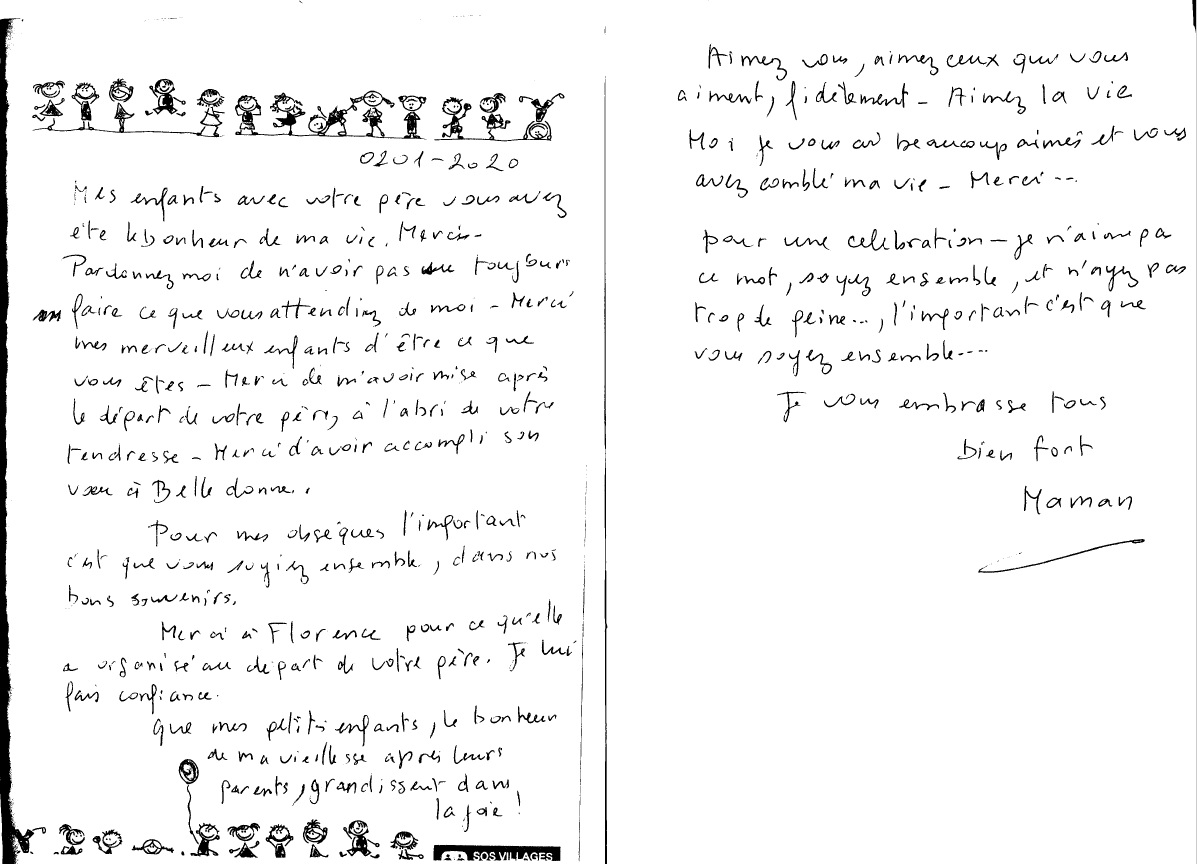 0201-2020
Mes enfants avec votre père vous avez
été le bonheur de ma vie. Merci -
Pardonnez moi de n'avoir pas su toujours
faire ce que vous attendiez de moi - Merci
mes merveilleux enfants d'être ce que
vous êtes - Merci de m'avoir mise après
le départ de votre père, à l'abri de votre
tendresse - Merci d'avoir accompli son
vœu à Belle donne..
Pour mes obsèques l'important
c'est que vous soyiez ensemble, dans nos
bons souvenirs.
Merci à Florence pour ce qu'elle
a organisé au départ de votre père. Je lui
fais confiance.
Que mes petits enfants, le bonheur
de ma vieillesse après leurs
parents, grandissent dans
la joie !
SOS VILLAGES
Aimez vous, aimez ceux qui vous
aiment, fidèlement - Aimez la vie
Moi je vous ai beaucoup aimés et vous
avez comblé ma vie - Merci ...
pour une celebration - je n'aime pa
ce mot, soyez ensemble, et n'ayez pas
trop de peine..., l'important c'est que
vous soyez ensemble....
Je vous embrasse tous
bien fort
Maman